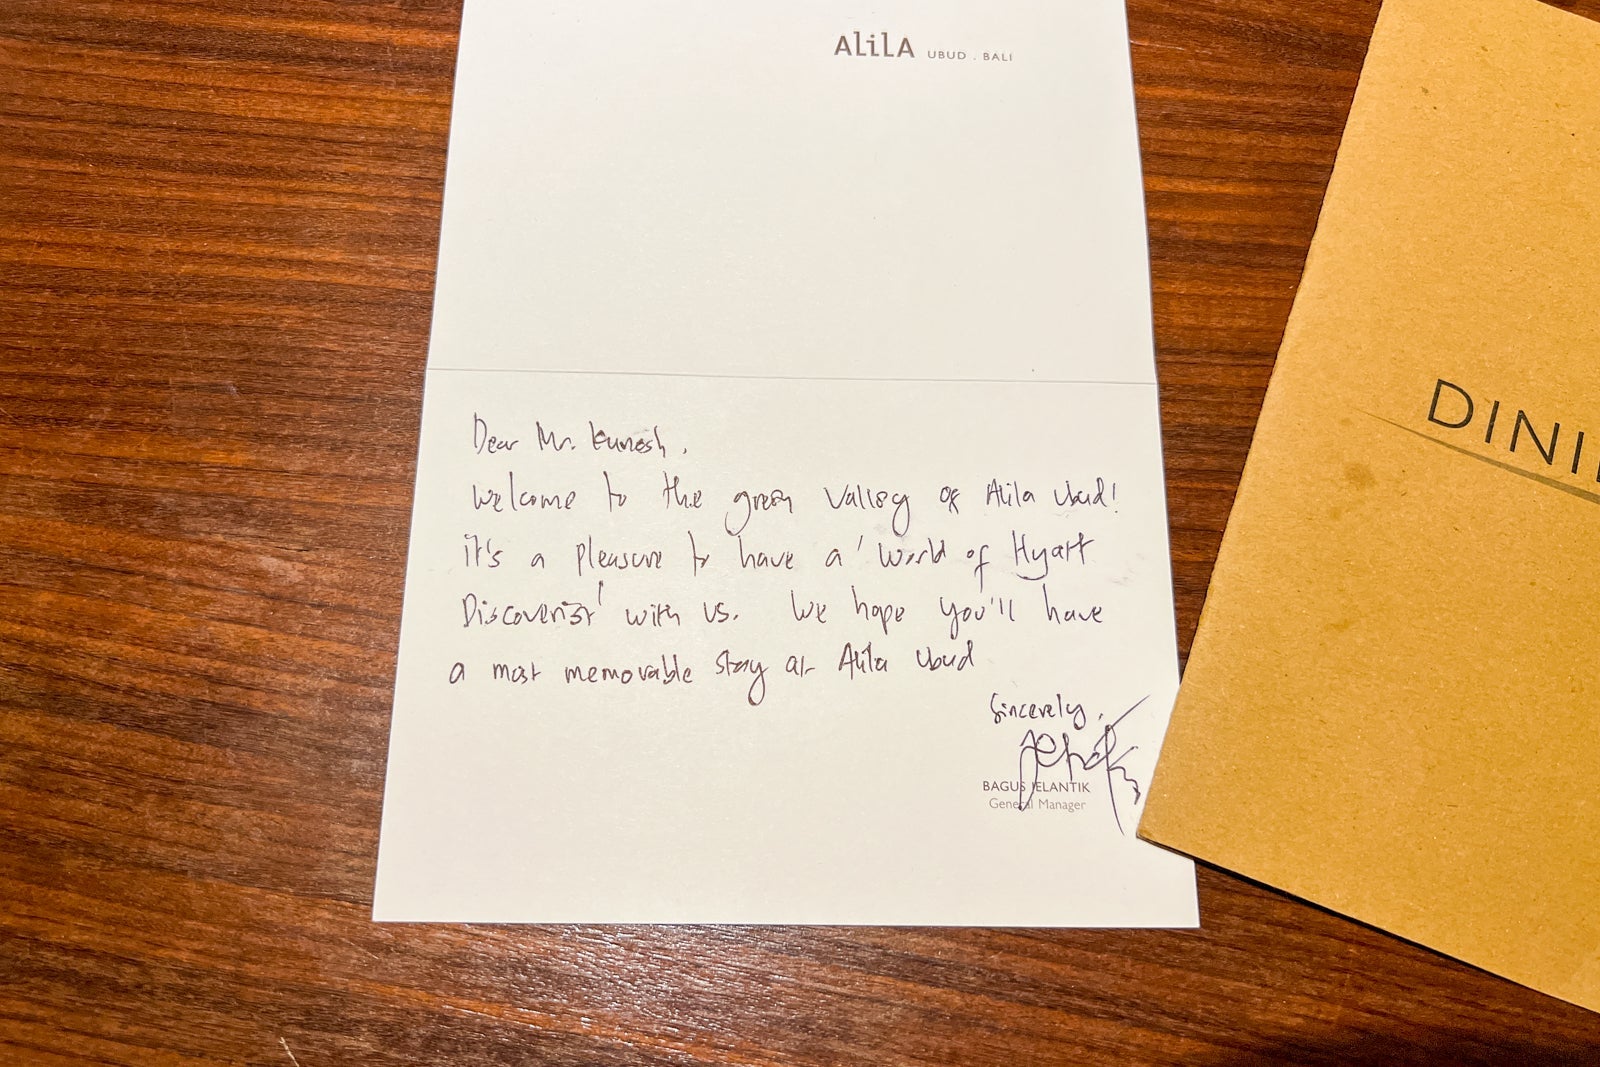 ALILA UBUD . BALI
Dear Mr. Kunesh,
Welcome to the green valley of Alila Ubud!
it's a pleasure to have a 'World of Hyatt
Discoverist' with us. We hope you'll have
a most memorable stay at Alila Ubud
Sincerely,
BAGUS JELANTIK
General Manager
DINI